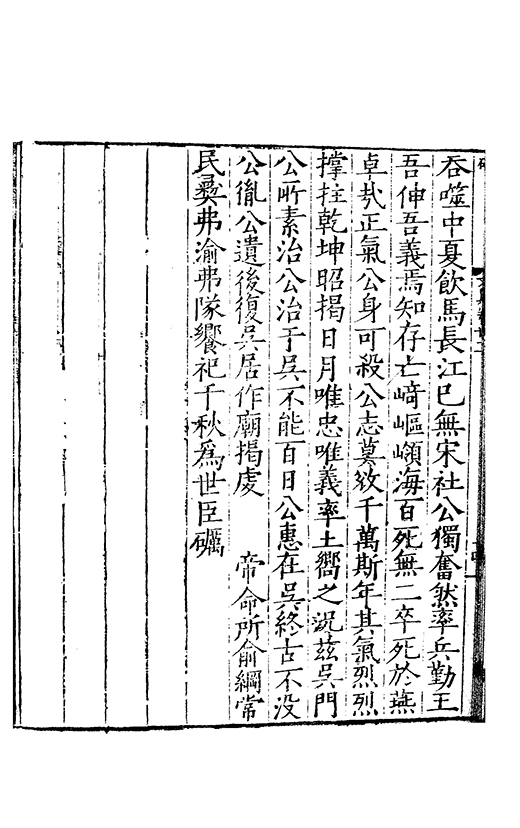 吞噬中夏飲馬長江巳無宋社公獨奮然率兵勤王
吾伸吾義焉知存亡﨑嶇嶺海百死無二卒死於燕
卓㢤正氣公身可殺公志莫效千萬斯年其氣烈烈
撑拄乾坤昭揭日月唯忠唯義率土嚮之況茲吳門
公所素治公治于吳不能百日公惠在吳終古不没
公胤公遺後復吳居作廟揭虔　帝命所俞綱常
民彞弗渝弗隊饗祀千秋為世臣礪